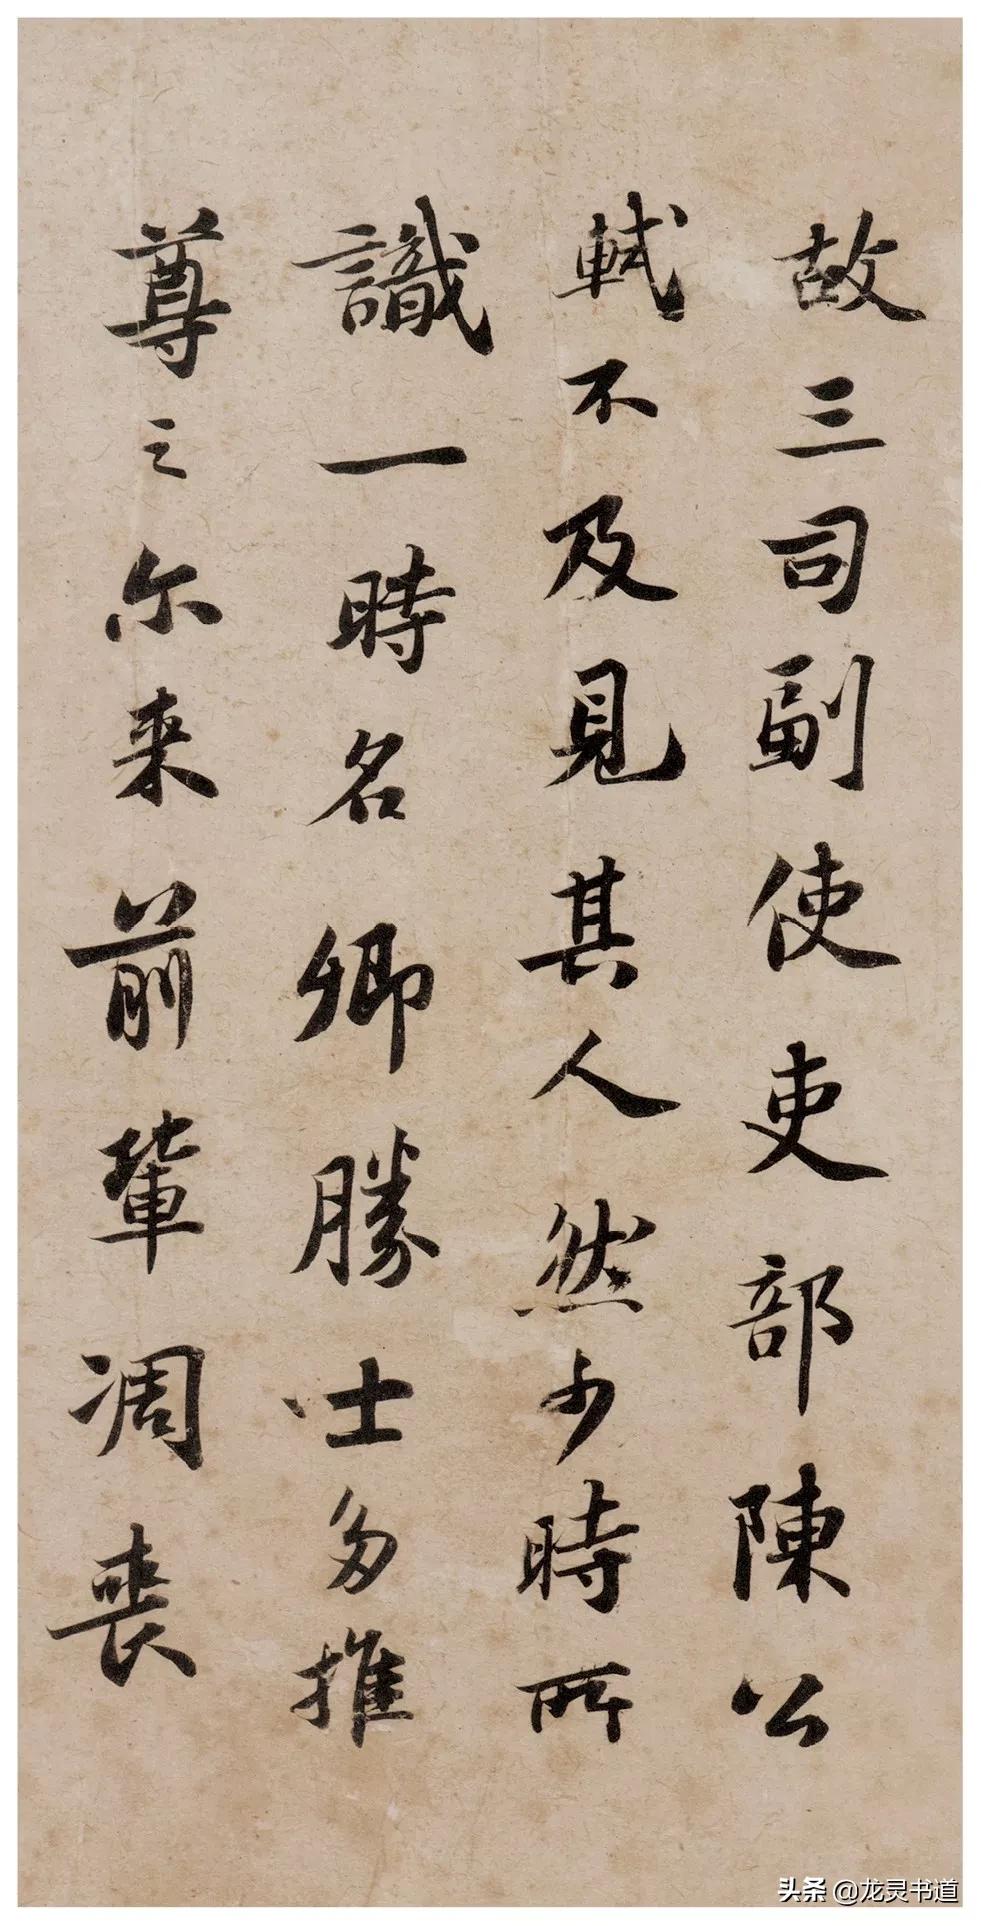 故三司副使吏部陳公
軾不及見其人然少時所
識一時名卿勝士多推
尊之尔来前輩凋喪
头条 @龙灵书道